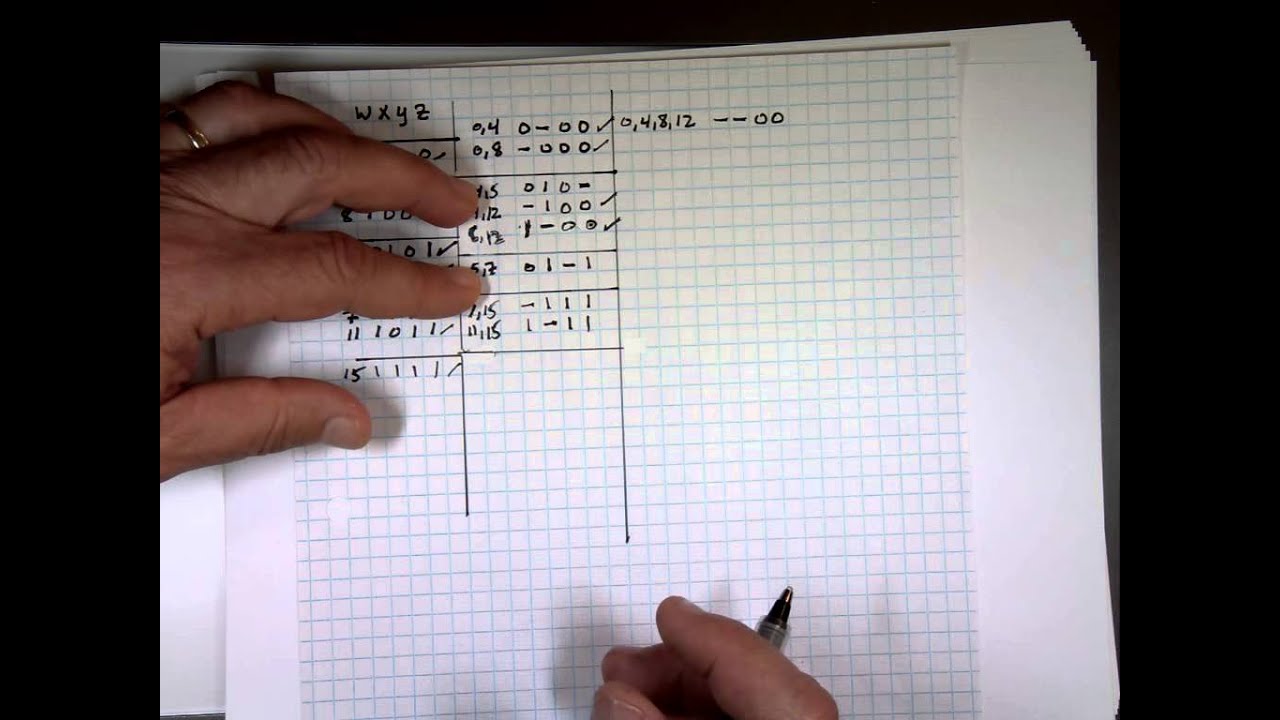 W X Y Z
0 ✓
8 1 0 0
1 0 1 ✓
7
11 1 0 1 1 ✓
15 1 1 1 1 ✓
0,4 0 – 0 0 ✓
0,8 – 0 0 0 ✓
,5 0 1 0 –
,12 – 1 0 0 ✓
8,12 1 – 0 0 ✓
5,7 0 1 – 1
7,15 – 1 1 1
11,15 1 – 1 1
0,4,8,12 – – 0 0